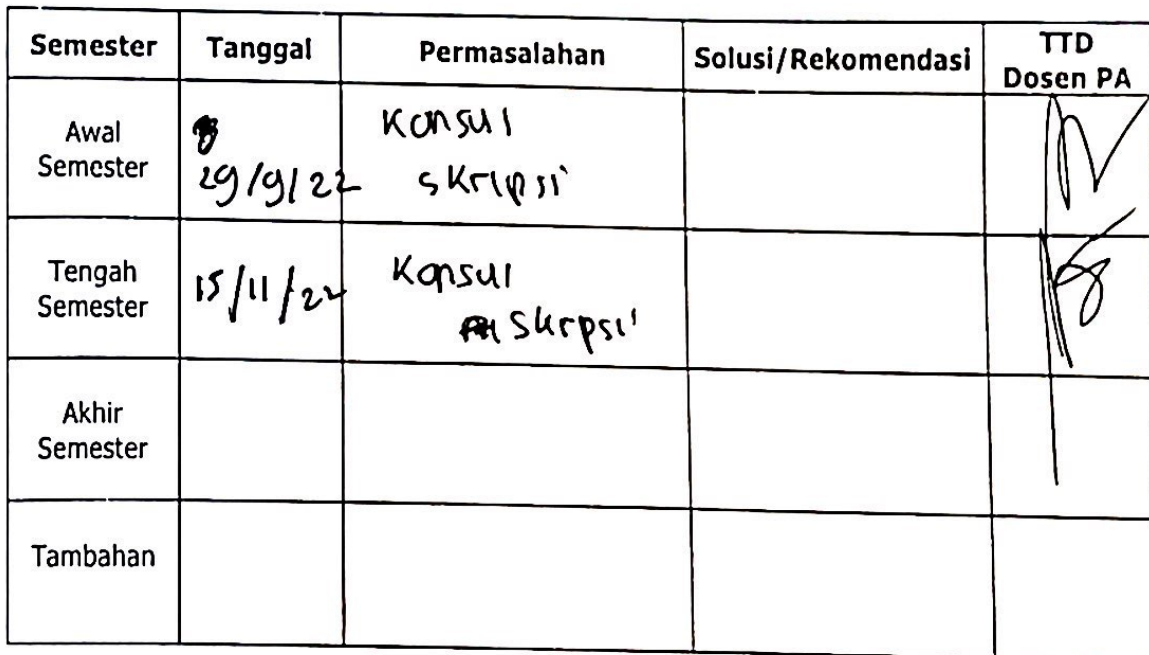 Semester Tanggal Permasalahan Solusi/Rekomendasi TTD
Dosen PA
Awal
Semester
29/9/22
Konsul
skripsi
Tengah
Semester
15/11/22
Konsul
Skrpsi
Akhir
Semester
Tambahan